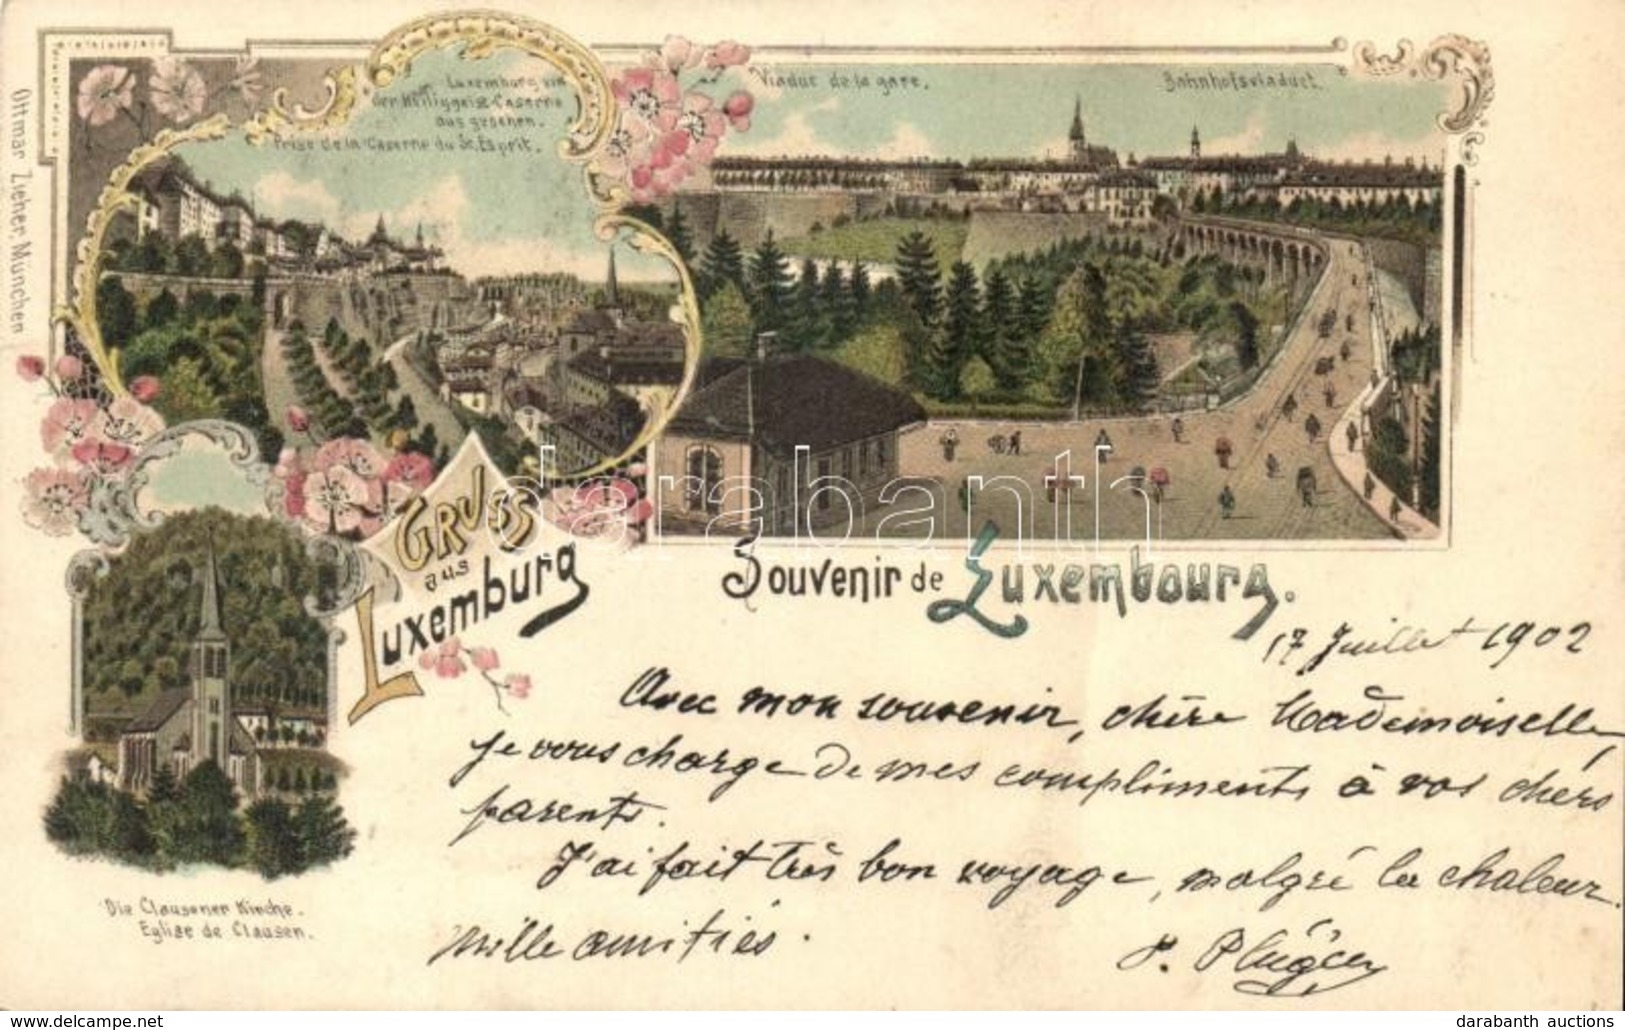 Ottmar Zieher, München
Luxemburg von
der Heiliggeist-Caserne
aus gesehen.
Prise de la Caserne du St. Esprit.
Viaduc de la gare.
Bahnhofsviaduct.
darabanth
Gruss
aus
Luxemburg
Souvenir de Luxembourg.
Die Clausener Kirche.
Eglise de Clausen.
17 Juillet 1902
Avec mon souvenir, chère Mademoiselle,
je vous charge de mes compliments à vos chers
parents.
J'ai fait très bon voyage, malgré la chaleur.
Mille amitiés.
www.darabanth.com
darabanth auctions